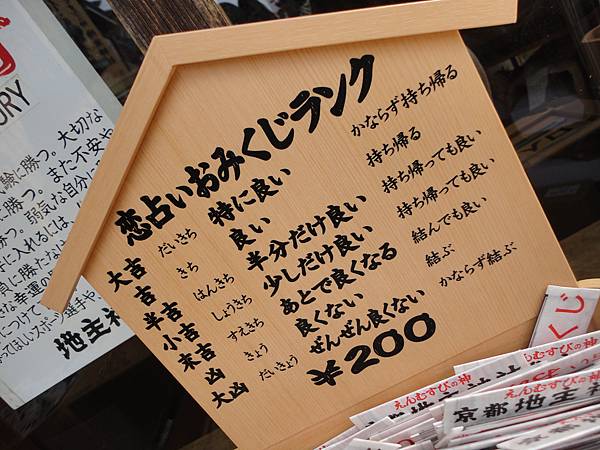 恋占いおみくじランク
大吉 だいきち 特に良い かならず持ち帰る
吉 きち 良い 持ち帰る
半吉 はんきち 半分だけ良い 持ち帰っても良い
小吉 しょうきち 少しだけ良い 持ち帰っても良い
末吉 すえきち あとで良くなる 結んでも良い
凶 きょう 良くない 結ぶ
大凶 だいきょう ぜんぜん良くない かならず結ぶ
¥200
ORY
に勝つ。大切な
に勝つ。また不安や
つ。弱気な自分に
手に入れるには、
幸運の
につけて
ってほしいスポーツ選手や
地主神
くじ
えんむすびの神
えんむすびの神
京都地主神